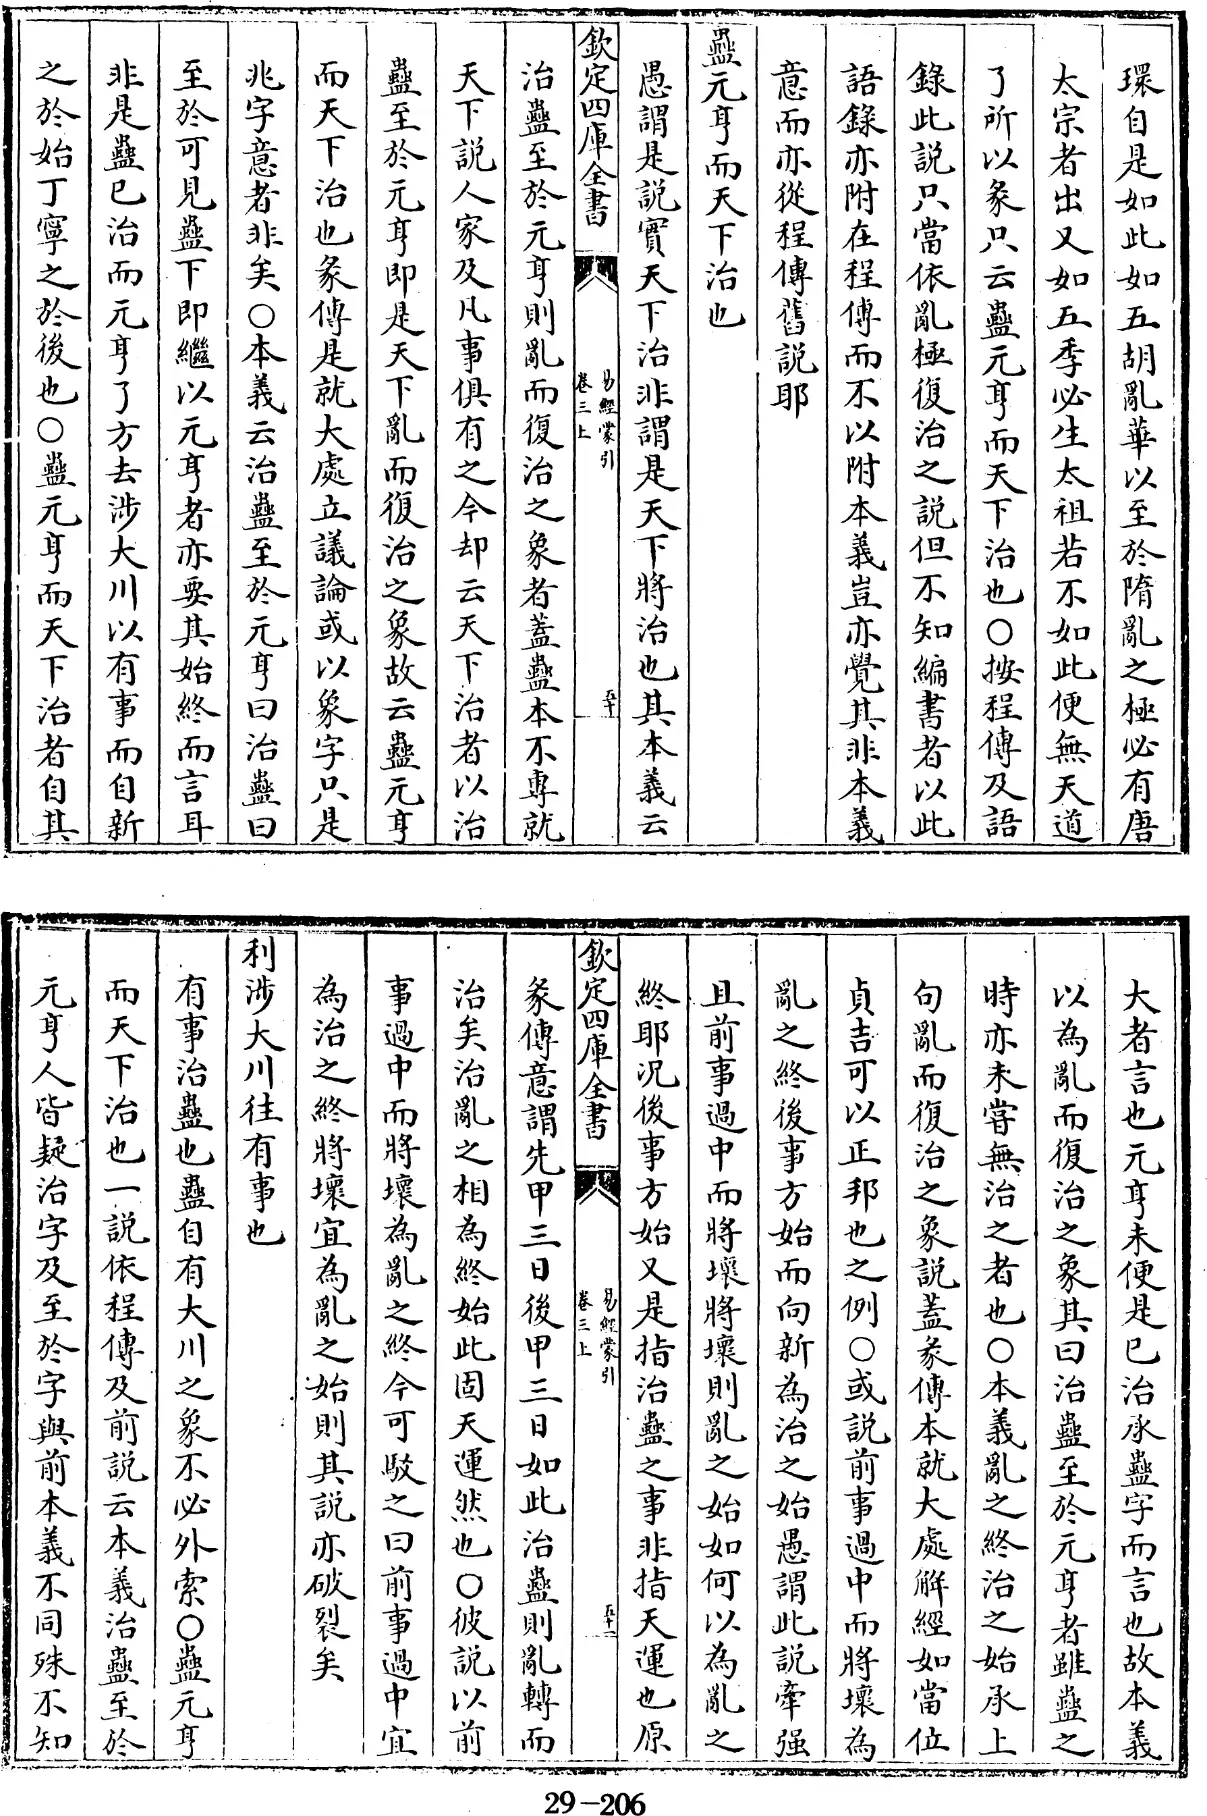 環自是如此如五胡亂華以至於隋亂之極必有唐
太宗者出又如五季必生太祖若不如此便無天道
了所以彖只云蠱元亨而天下治也○按程傳及語
錄此説只當依亂極復治之説但不知編書者以此
語錄亦附在程傳而不以附本義豈亦覺其非本義
意而亦從程傳舊説耶
蠱元亨而天下治也
愚謂是説實天下治非謂是天下將治也其本義云
欽定四庫全書
易經蒙引
卷三上
五十
治蠱至於元亨則亂而復治之象者蓋蠱本不專就
天下説人家及凡事俱有之今却云天下治者以治
蠱至於元亨即是天下亂而復治之象故云蠱元亨
而天下治也彖傳是就大處立議論或以象字只是
兆字意者非矣○本義云治蠱至於元亨曰治蠱曰
至於可見蠱下即繼以元亨者亦要其始終而言耳
非是蠱已治而元亨了方去涉大川以有事而自新
之於始丁寧之於後也○蠱元亨而天下治者自其
大者言也元亨未便是已治承蠱字而言也故本義
以為亂而復治之象其曰治蠱至於元亨者雖蠱之
時亦未嘗無治之者也○本義亂之終治之始承上
句亂而復治之象説蓋彖傳本就大處解經如當位
貞吉可以正邦也之例○或説前事過中而將壞為
亂之終後事方始而向新為治之始愚謂此説牽强
且前事過中而將壞將壞則亂之始如何以為亂之
終耶况後事方始又是指治蠱之事非指天運也原
欽定四庫全書
易經蒙引
卷三上
五十一
彖傳意謂先甲三日後甲三日如此治蠱則亂轉而
治矣治亂之相為終始此固天運然也○彼説以前
事過中而將壞為亂之終今可駁之曰前事過中宜
為治之終將壞宜為亂之始則其説亦破裂矣
利涉大川往有事也
有事治蠱也蠱自有大川之象不必外索○蠱元亨
而天下治也一説依程傳及前説云本義治蠱至於
元亨人皆疑治字及至於字與前本義不同殊不知
29-206